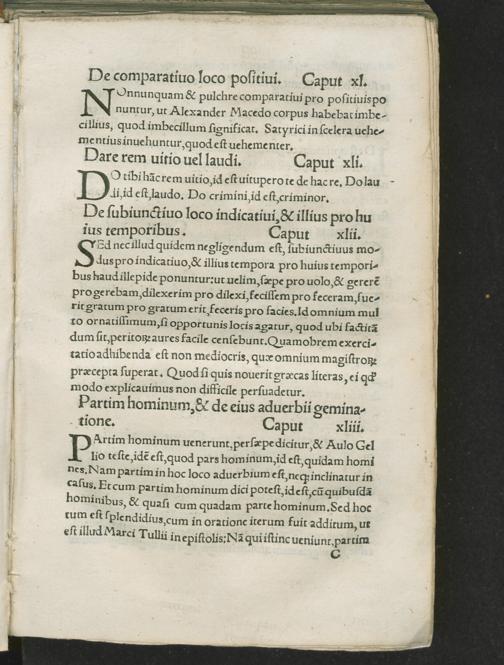 De comparatiuo loco positiui. Caput xl.
NOnnunquam & pulchre comparatiui pro positiuis po
nuntur, ut Alexander Macedo corpus habebat imbe-
cillius, quod imbecillum significat. Satyrici in scelera uehe-
mentius inuehuntur, quod est uehementer.
Dare rem uitio uel laudi. Caput xli.
DO tibi hãc rem uitio, id est uitupero te de hac re. Do lau
di, id est, laudo. Do crimini, id est, criminor.
De subiunctiuo loco indicatiui, & illius pro hu
ius temporibus. Caput xlii.
SEd nec illud quidem negligendum est, subiunctiuus mo-
dus pro indicatiuo, & illius tempora pro huius tempori-
bus haud illepide ponuntur: ut uelim, sæpe pro uolo, & gererẽ
pro gerebam, dilexerim pro dilexi, fecissem pro feceram, fue-
rit gratum pro gratum erit, feceris pro facies. Id omnium mul
to ornatissimum, si opportunis locis agatur, quod ubi factitã
dum sit, peritoꝝ aures facile censebunt. Quamobrem exerci-
tatio adhibenda est non mediocris, quæ omnium magistroꝝ
præcepta superat. Quod si quis nouerit græcas literas, ei qd̕
modo explicauimus non difficile persuadetur.
Partim hominum, & de eius aduerbii gemina-
tione. Caput xliii.
PArtim hominum uenerunt, persæpe dicitur, & Aulo Gel
lio teste, idẽ est, quod pars hominum, id est, quidam homi
nes. Nam partim in hoc loco aduerbium est, neqꝫ inclinatur in
casus. Et cum partim hominum dici potest, id est, cũ quibusdã
hominibus, & quasi cum quadam parte hominum. Sed hoc
tum est splendidius, cum in oratione iterum fuit additum, ut
est illud Marci Tullii in epistolis: Nã qui istinc ueniunt, partim
C